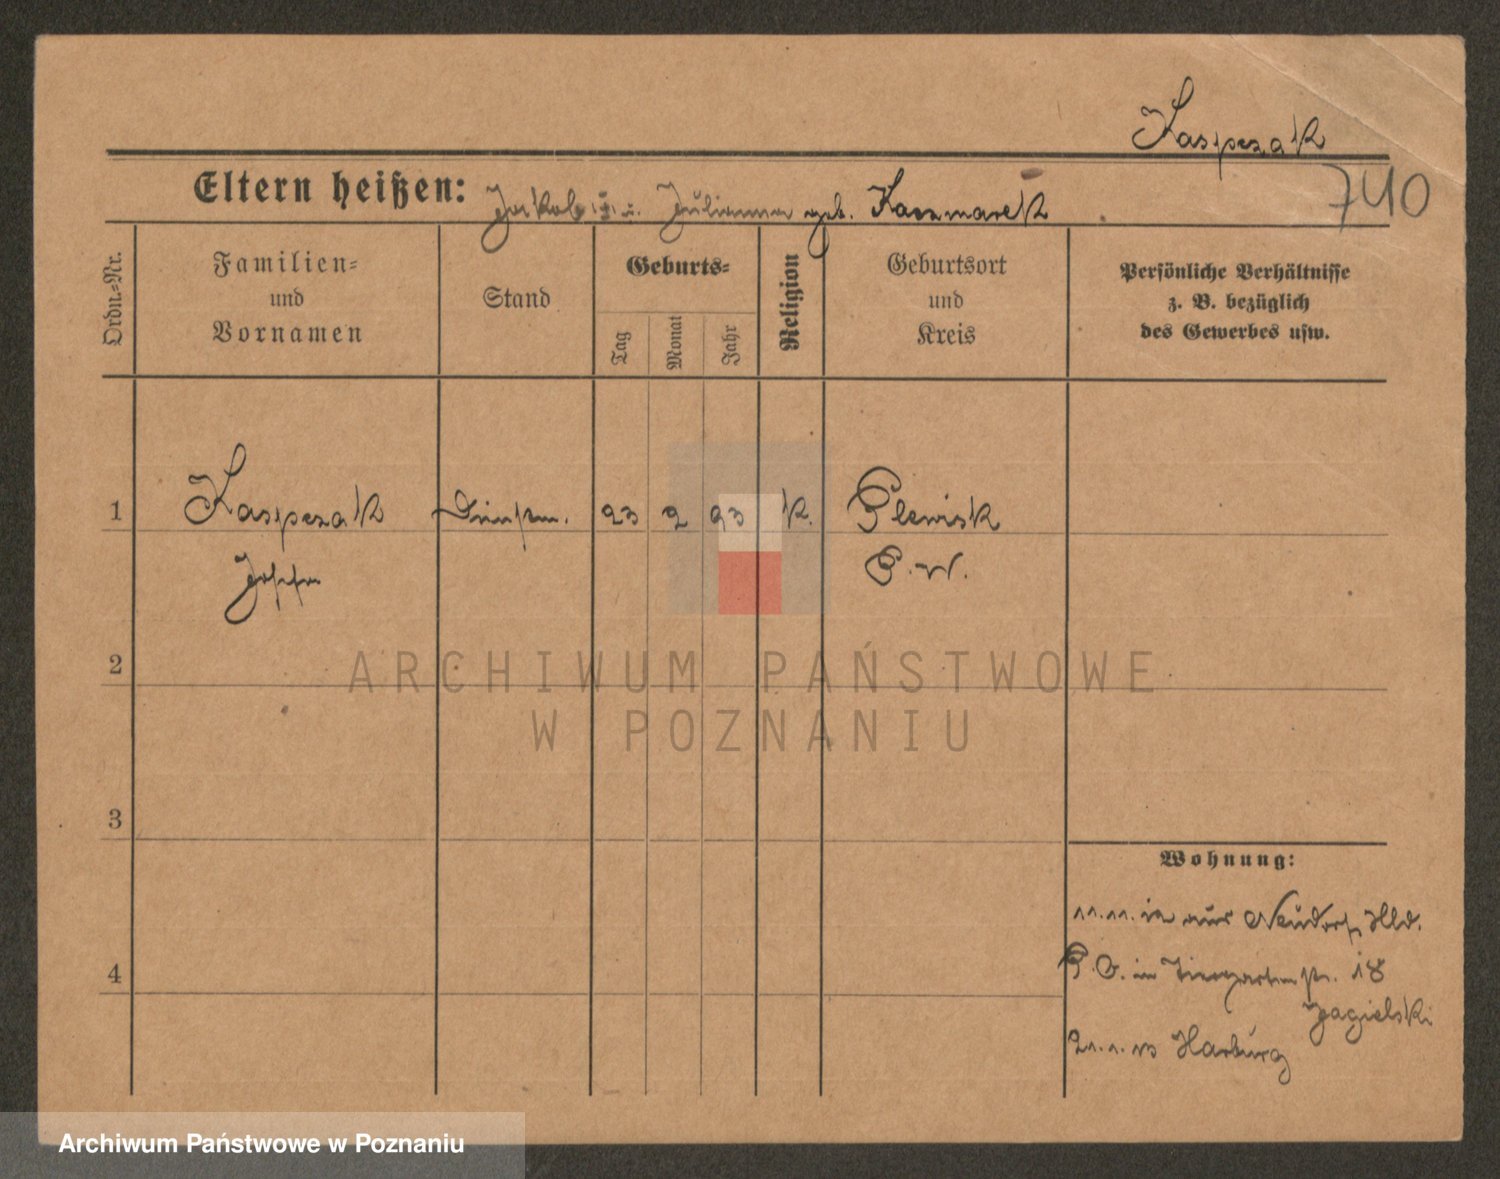 Kaspczak
740
Eltern heißen: Jakob u. Julianna geb. Kaczmarek
Ordn.=Nr.
Familien=
und
Vornamen
Stand
Geburts=
Tag
Monat
Jahr
Religion
Geburtsort
und
Kreis
Persönliche Verhältnisse
z. B. bezüglich
des Gewerbes usw.
1
Kaspczak
23 2 93 K.
Plewisk
P. W.
Josefa
2
3
4
Wohnung:
11.11. 12 aus Neudorf
in Tiergartenstr. 18
Jagielski
21.1.13 Harburg
ARCHIWUM PAŃSTWOWE
W POZNANIU
Archiwum Państwowe w Poznaniu